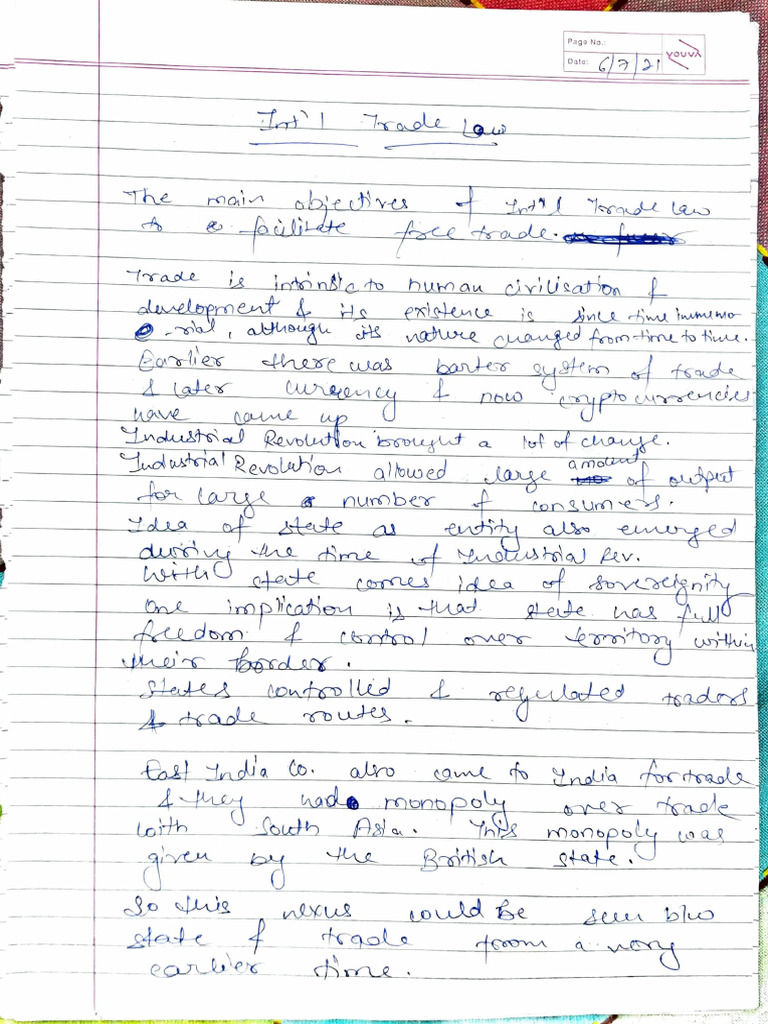 Page No.:
Date: 6/7/21
YOUVA
Int'l Trade Law
The main objectives of Int'l Trade Law
to facilitate free trade.
Trade is intrinsic to human civilisation &
development & its existence is since time immemo
-rial, although its nature changed from time to time.
Earlier there was barter system of trade
& later currency & now cryptocurrencies
have came up
Industrial Revolution brought a lot of change.
Industrial Revolution allowed large amount of output
for large number of consumers.
Idea of state as entity also emerged
during the time of Industrial Rev.
With state comes idea of sovereignity
One implication is that state has full
freedom & control over territory within
their border.
States controlled & regulated traders
& trade routes.
East India Co. also came to India for trade
& they had monopoly over trade
with South Asia. This monopoly was
given by the British state.
So this nexus could be seen b/w
state & trade from a very
earlier time.